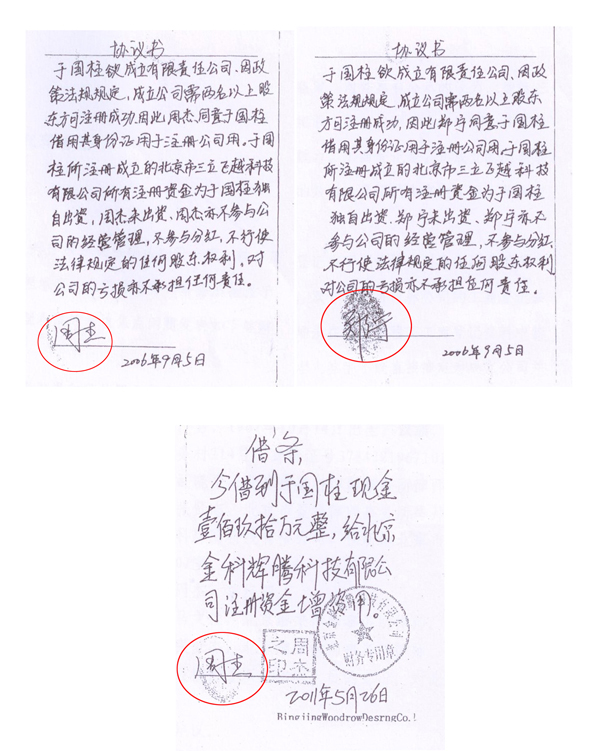 协议书
于国柱欲成立有限责任公司、因政
策法规规定,成立公司需两名以上股
东方可注册成功,因此周杰同意于国柱
借用其身份证用于注册公司用。于国
柱所注册成立的北京市三立飞越科技
有限公司所有注册资金为于国柱独
自出资,周杰未出资、周杰亦不参与公
司的经营管理,不参与分红,不行使
法律规定的任何股东权利,对
公司的亏损亦不承担任何责任。
周杰
2006年9月5日
协议书
于国柱欲成立有限责任公司、因政
策法规规定,成立公司需两名以上股东
方可注册成功,因此郑宁同意于国柱
借用其身份证用于注册公司用。于国柱
所注册成立的北京市三立飞越科技
有限公司所有注册资金为于国柱
独自出资、郑宁未出资、郑宁亦不
参与公司的经营管理,不参与分红,
不行使法律规定的任何股东权利
对公司的亏损亦不承担任何责任。
2006年9月5日
借条
今借到于国柱现金
壹佰玖拾万元整,给北京
金科辉腾科技有限公
司注册资金增资用。
周杰
周杰之印
财务专用章
2011年5月26日
RingjingWoodrowDesrngCo.!